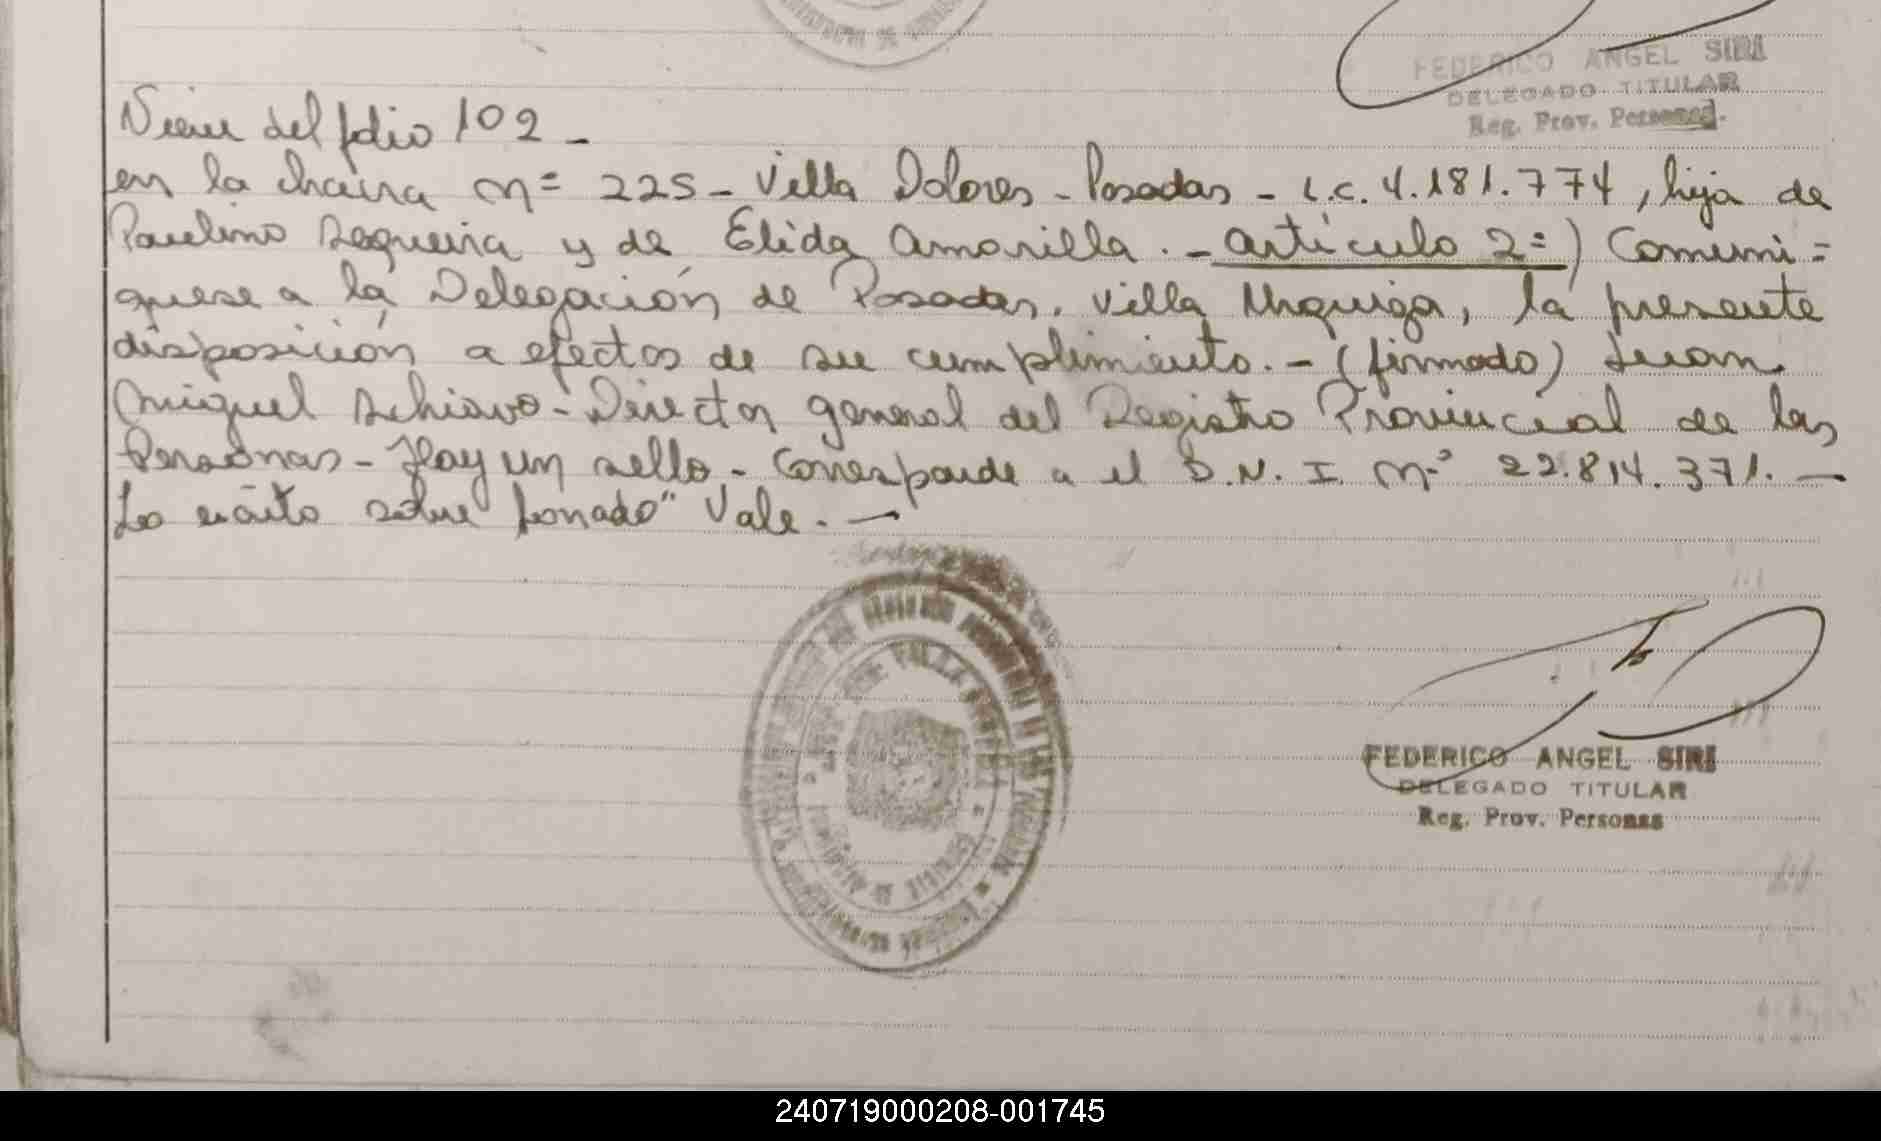 FEDERICO ANGEL SIRI
DELEGADO TITULAR
Reg. Prov. Personas.
Viene del folio 102 -
en la chacra nº 225 - Villa Dolores - Posadas - L.C. 4.181.774, hija de
Paulino Sequeira y de Elida Amarilla. - Artículo 2º) Comuní=
quese a la Delegación de Posadas, Villa Urquiza, la presente
disposición a efectos de su cumplimiento. - (firmado) Juan
Miguel Schiavo - Director general del Registro Provincial de las
Personas - Hay un sello - Corresponde a el D.N.I. Nº 22.814.371. -
Lo escrito sobre borrado" Vale. -
FEDERICO ANGEL SIRI
DELEGADO TITULAR
Reg. Prov. Personas
240719000208-001745